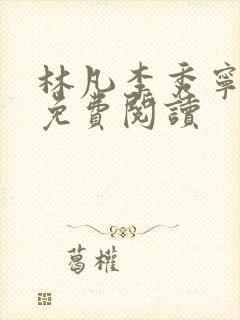 林凡李秀寧
免費閱讀
葛權